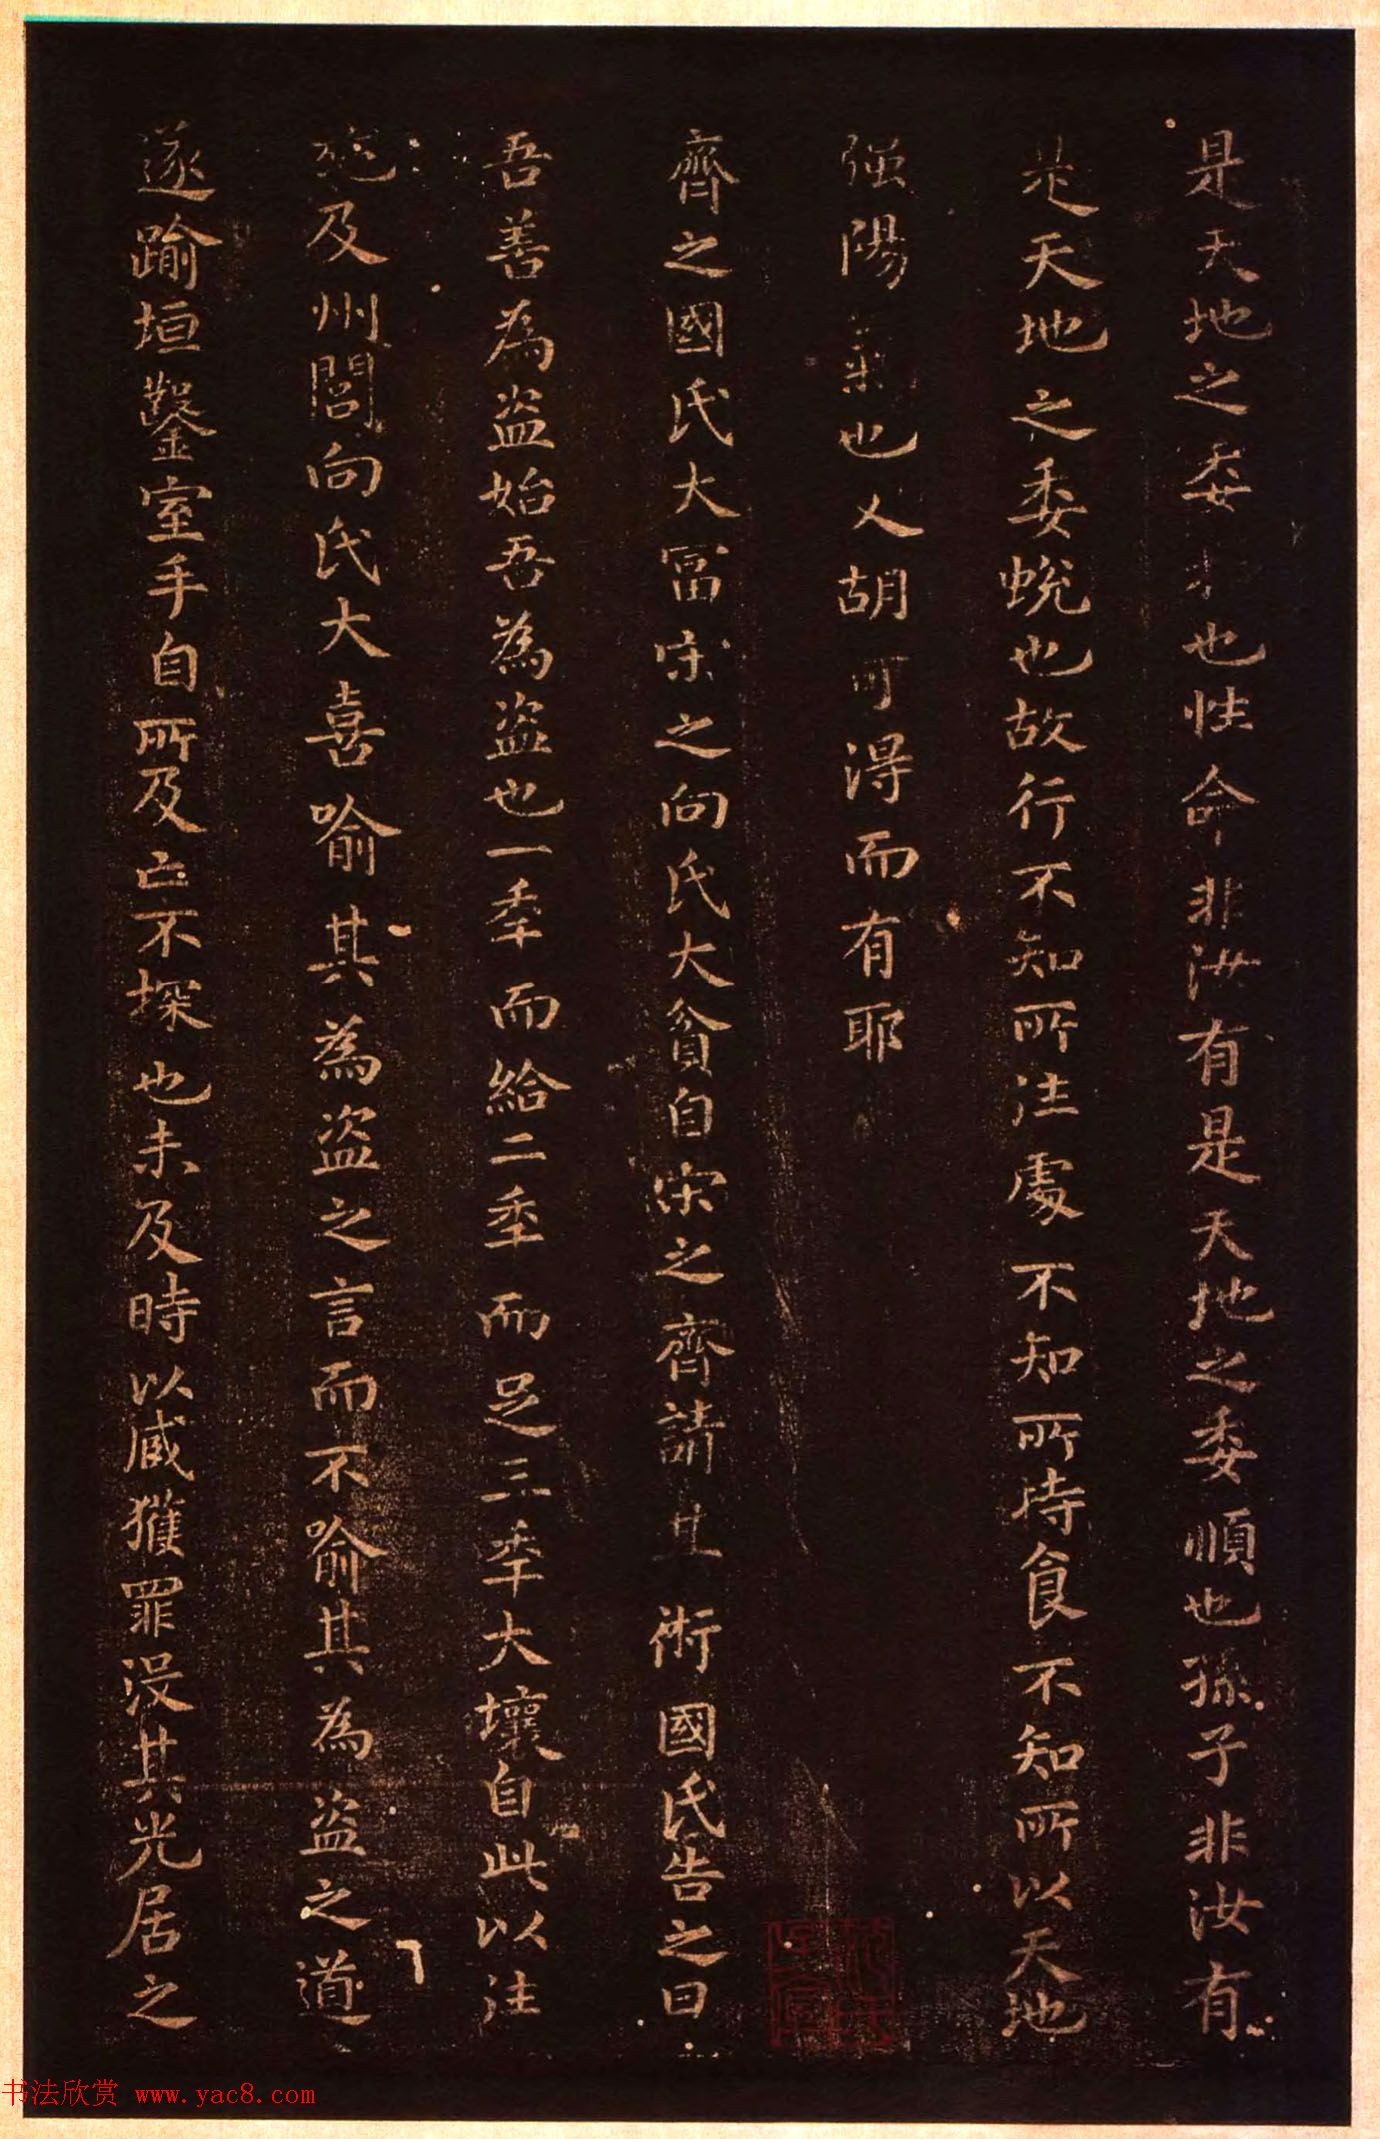 是天地之委和也性命非汝有是天地之委順也孫子非汝有
是天地之委蛻也故行不知所往處不知所持食不知所以天地
强陽氣也人胡可得而有耶
齊之國氏大冨宋之向氏大貧自宋之齊請其術國氏告之曰
吾善為盜始吾為盜也一秊而給二秊而足三秊大壤自此以往
施及州閭向氏大喜喻其為盜之言而不喻其為盜之道
遂踰垣鑿室手自所及亡不探也未及時以臧獲罪没其先居之
书法欣赏 www.yac8.com